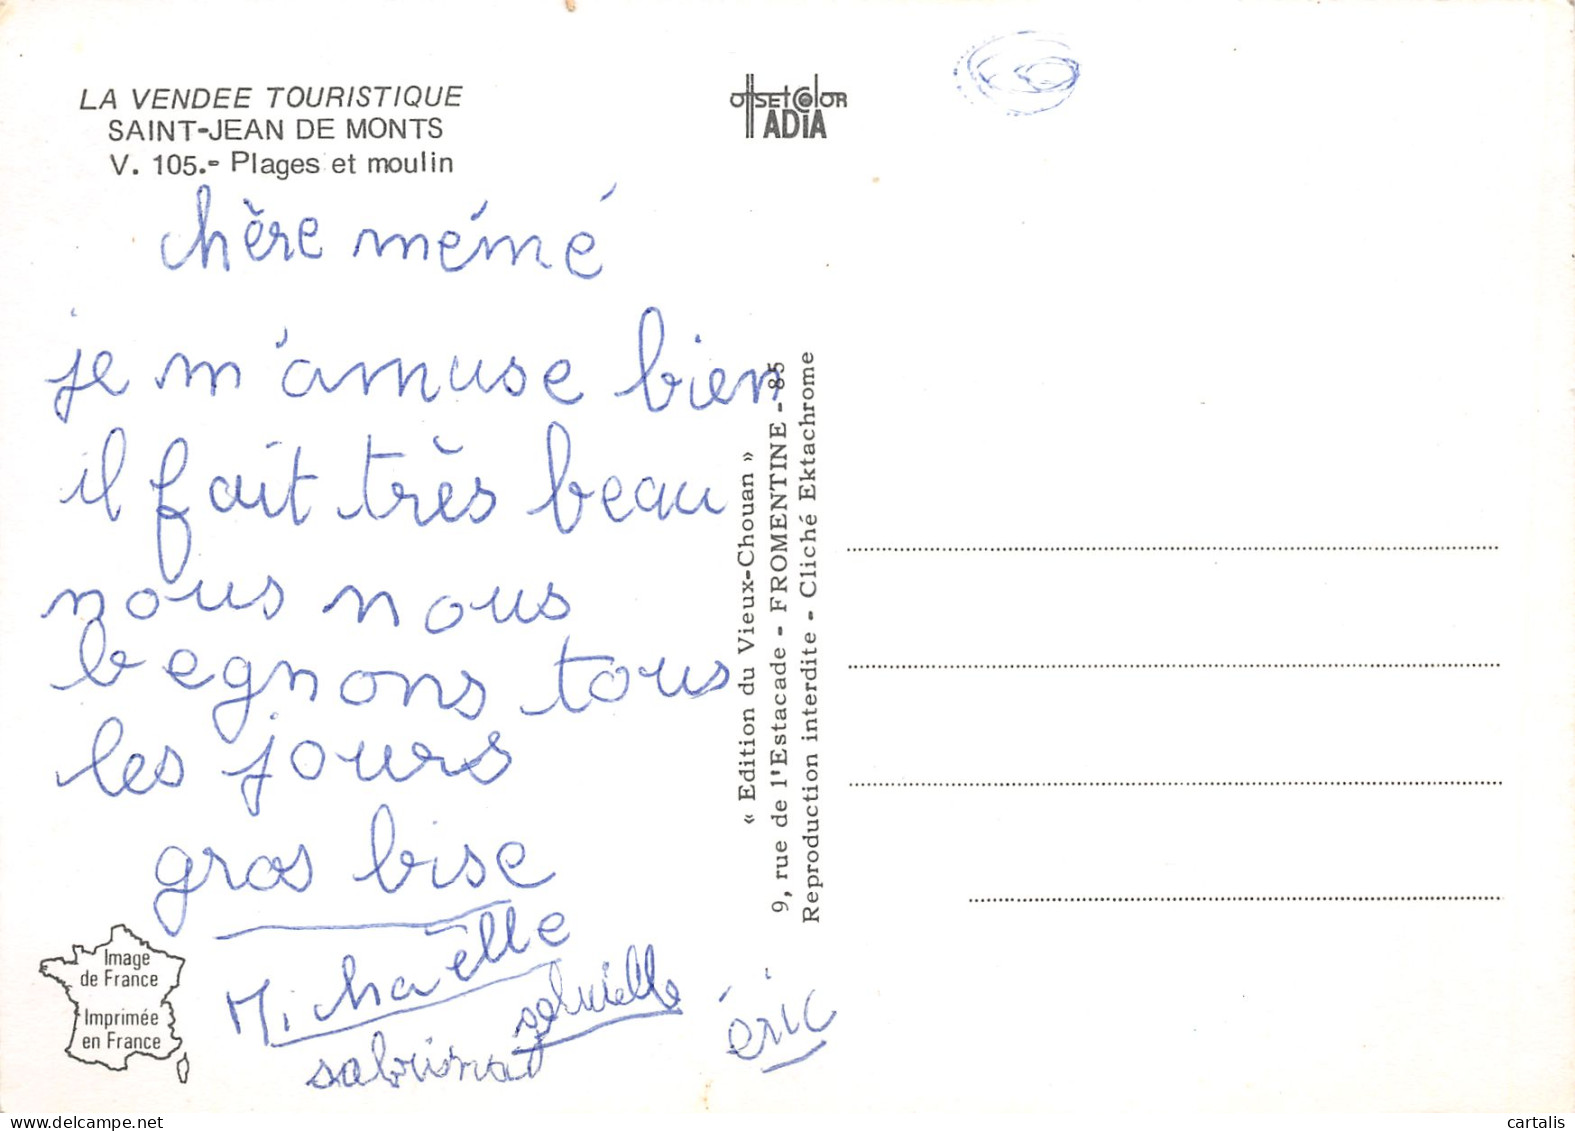 LA VENDEE TOURISTIQUE
SAINT-JEAN DE MONTS
V. 105.- Plages et moulin
chère mémé
je m'amuse bien
il fait très beau
nous nous
begnons tous
les jours
gros bise
Michaëlle
sabrina
éric
Image
de France
Imprimée
en France
« Edition du Vieux-Chouan »
9, rue de l'Estacade - FROMENTINE - 85
Reproduction interdite - Cliché Ektachrome
OffSEtCOlOR
ADIA
cartalis